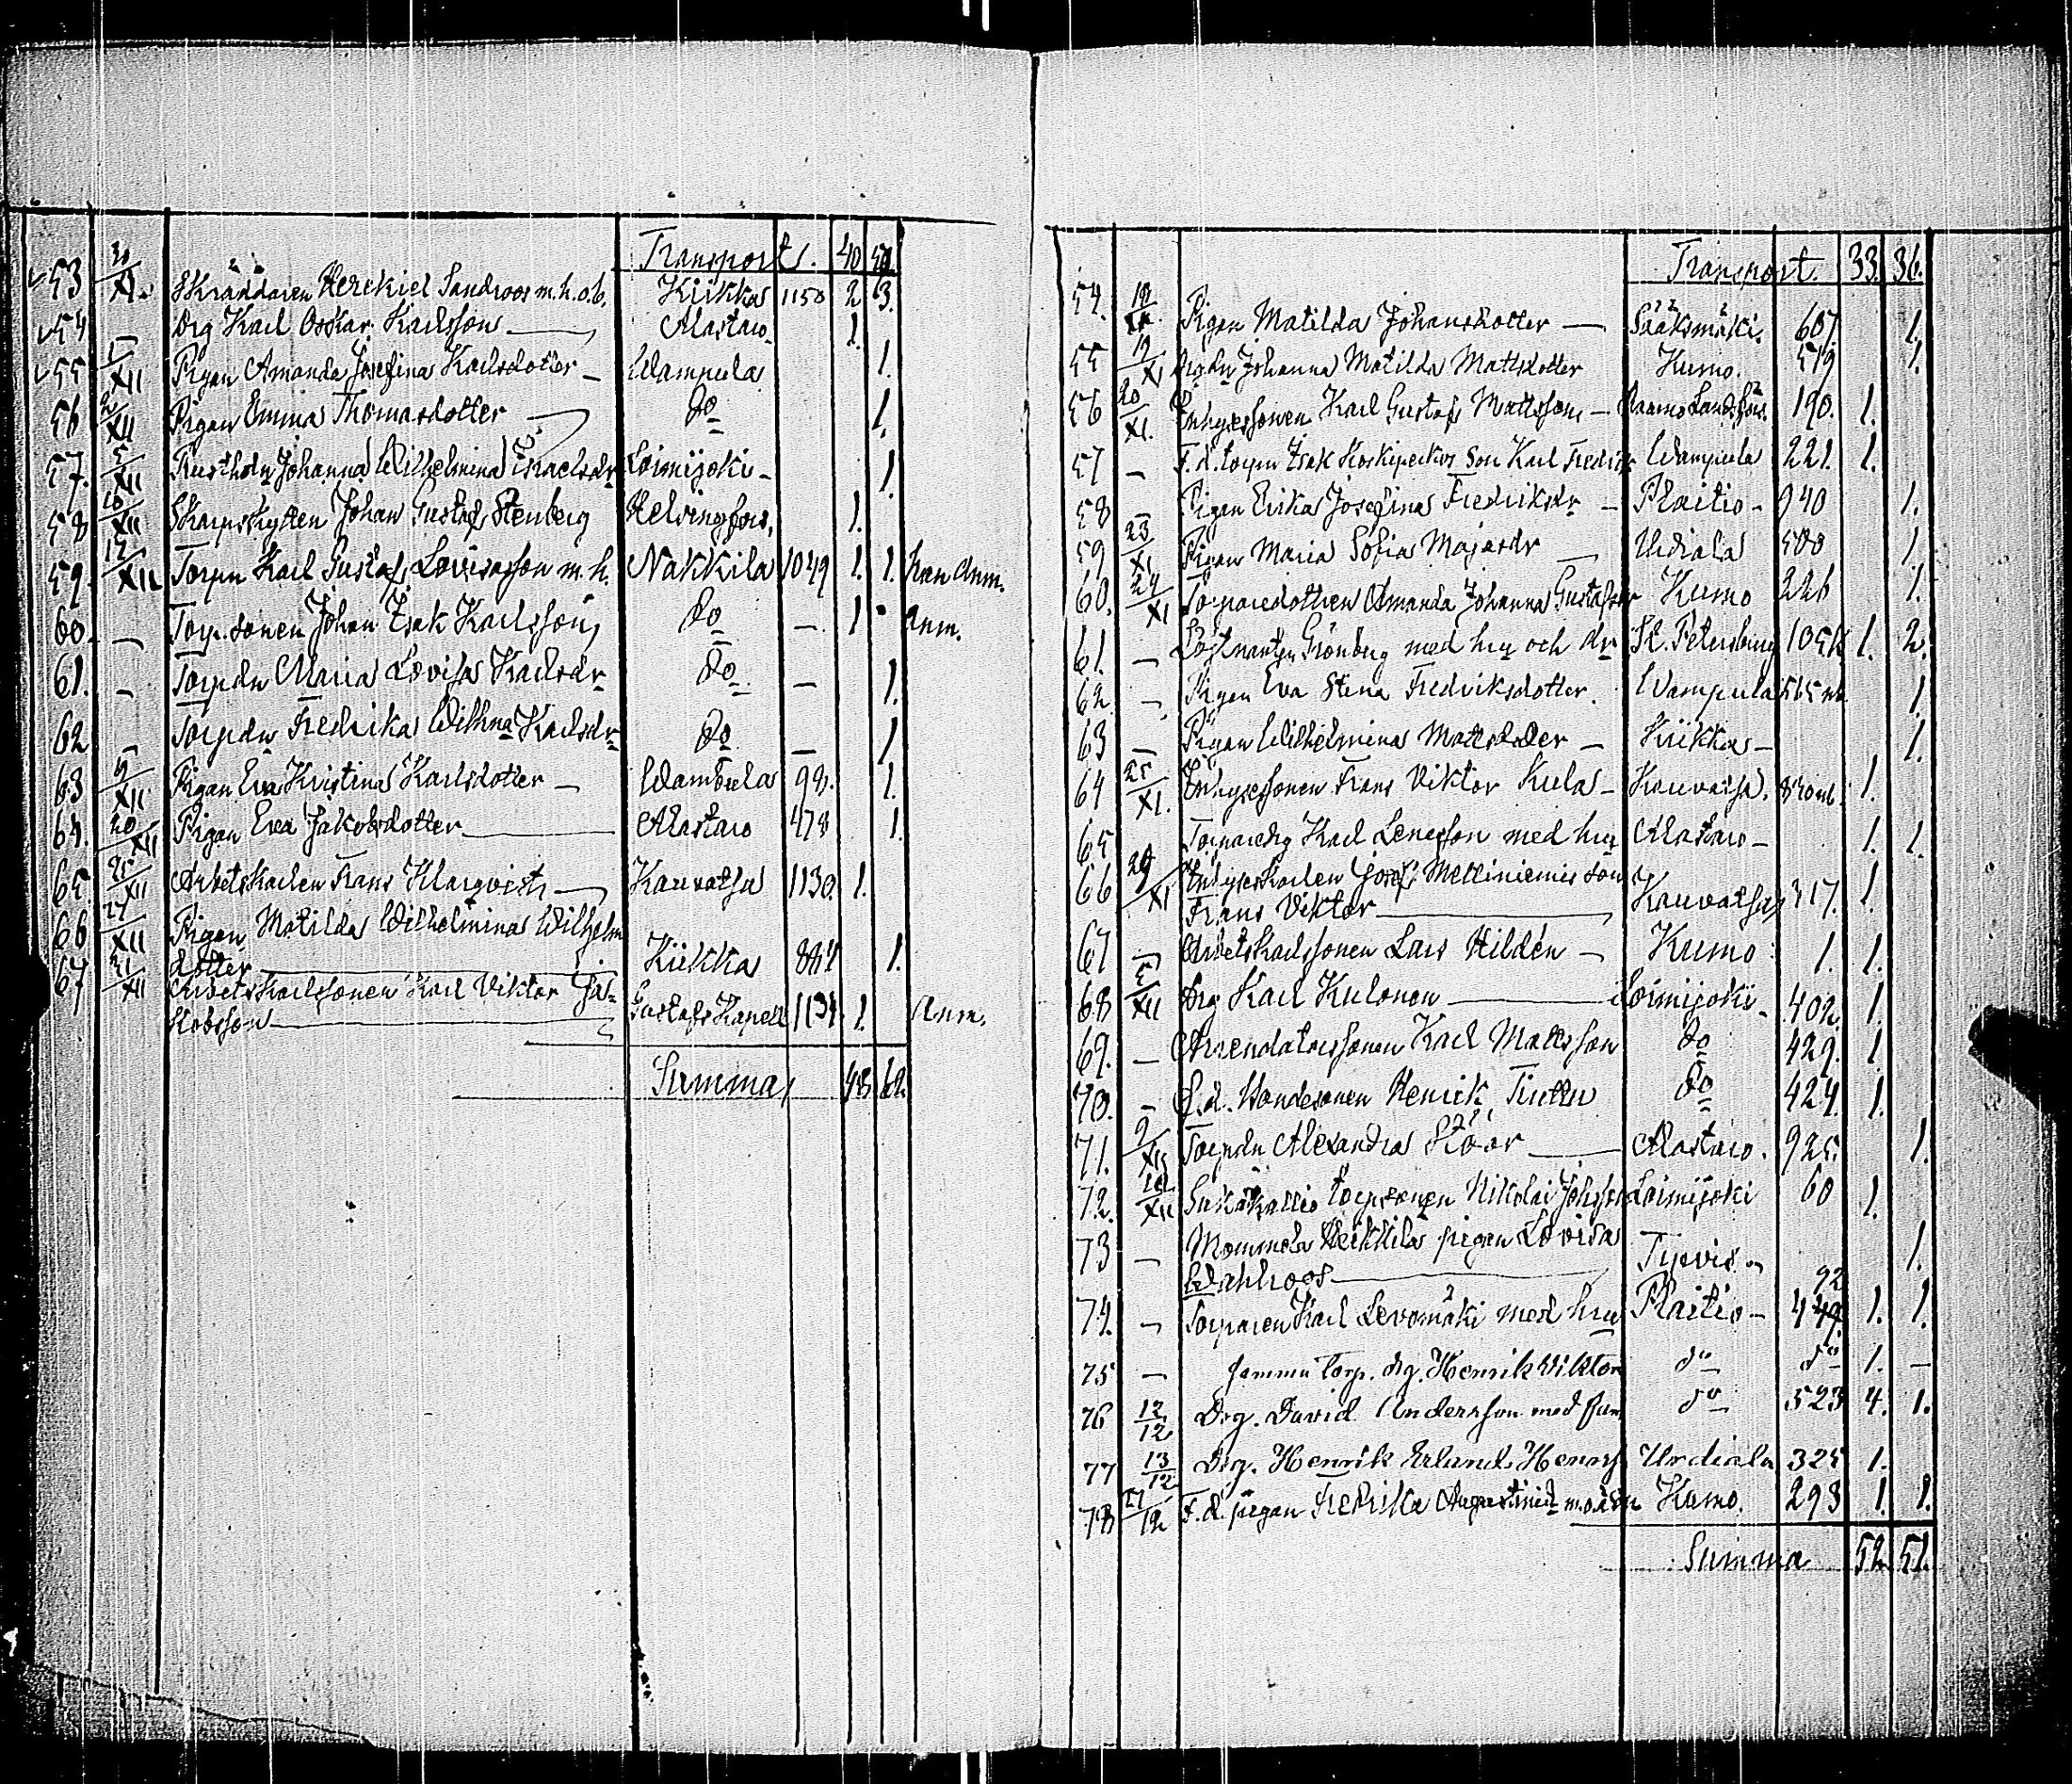 Transport. 40 50.
53 30/XI. Skräddaren Hezekiel Sandroos m. h. o. b. Kiikka 1150 2 3.
54 — Drg Karl Oskar Karlsson — Alastaro 1.
55 1/XII Pigan Amanda Josefina Karlsdotter — Wampula 1.
56 2/XII Pigan Emma Thomasdotter — Do 1.
57. 5/XII Rusth.dn Johanna Wilhelmina Israelsdr Loimijoki — 1.
58 10/XII Skarpskytten Johan Gustaf Stenberg Helsingfors, 1.
59. 12/XII Torpn Karl Gustaf Lovisasson m. h. Nakkila 1049 1. 1. Anm.
60. — Torp. sonen Johan Isak Karlsson, Do — 1 Anm.
61. — Torpdn Maria Lovisa Karlsdr Do — 1.
62 — Torpdn Fredrika Wilhna Karlsdr Do — 1
63 9/XII Pigan Eva Kristina Karlsdotter — Wambula 98. 1.
64. 20/XII Pigan Eva Jakobsdotter — Alastaro 478 1.
65. 21/XII Arbetskarlen Frans Klarqvist — Kauvatsa 1130. 1.
66 27/XII Pigan Matilda Wilhelmina Wilhelms
dotter — Kiikka 884 1.
67 31/XII Arbetskarlssonen Karl Viktor Ja-
kobsson — Gustafs Kapell 1134. 1. Anm.
Summa, 48 62.
Transport. 33. 36.
54. 18/XI Pigan Matilda Johansdotter — Sääksmäki. 607. 1.
55 19/XI Johanna Matilda Mattsdotter Kumo. 579 1.
56 20/XI. Inhysessonen Karl Gustaf Mattsson — Raumo Landsförs. 190. 1.
57 — F. d. torpn Isak Koskipeikos Son Karl Fredrik Wampula 221. 1.
58 — Pigan Erika Josefina Fredriksdr — Plaitio — 940 1.
59 23/XI Pigan Maria Sofia Majasdr — Urdiala 500 1.
60. 24/XI Torparedottren Amanda Johanna Gustafsdr Kumo 226 1.
61. — Grönberg med hru och dr St. Petersburg 1. 2.
62. — Pigan Eva Stina Fredriksdotter. Wampula 1.
63 — Pigan Wilhelmina Mattsdotter — Kiikka — 1.
64 25/XI. Inhysessonen Frans Viktor Kula — Kauvatsa. 1.
65 Torparedrg Karl Lenesson med hru Alastaro — 1. 1.
66 29/XI Inhyseskarlen Josef Melliniemis son
Frans Viktor — Kauvatsa 317. 1.
67 — Arbetskarlssonen Lars Hildén — Kumo 1. 1.
68 5/XII Drg Karl Kulonon — Loimijoki — 402. 1.
69. — Arrendatorssonen Karl Mattsson do 429. 1
70. — F. d. Henrik Do 424. 1.
71. 9/XII Torpdn Alexandra Stöör — Alastaro. 925. 1.
72. 10/XII torpsonen Nikolai Johsson Loimijoki 60 1.
73 — Mommola Heikkilä pigan Lovisa
Wahlroos — Tyrvis 1.
74. — Torparen Karl Levomäki med hru Plaitio — 92 449. 1. 1.
75 — Samma Torp. drg. Henrik Viktor do — do — 1. —
76 12/12 Drg. David Andersson med fam do — 523 4. 1.
77 13/12 Drg. Henrik Erland Henrss Urdiala 325 1.
78 27/12 F. d. pigan Fredrika Augustind. m. o. Son Kumo. 293 1. 1.
Summa 52. 51.